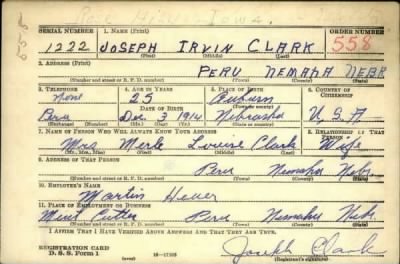 Iowa.
SERIAL NUMBER 1. NAME (Print) ORDER NUMBER
1222 JOSEPH IRVIN CLARK 558
2. ADDRESS (Print)
PERU NEMAHA NEBR
(Number and street or R. F. D. number) (Town) (County) (State)
3. TELEPHONE 4. AGE IN YEARS 5. PLACE OF BIRTH 6. COUNTRY OF CITIZENSHIP
None 25 Auburn
DATE OF BIRTH (Town or county)
Peru Dec. 3 1914 Nebraska U.S.A.
(Exchange) (Number) (Mo.) (Day) (Yr.) (State or country)
7. NAME OF PERSON WHO WILL ALWAYS KNOW YOUR ADDRESS 8. RELATIONSHIP OF THAT PERSON
Mrs Merle Louise Clark Wife
(Mr., Mrs., Miss) (First) (Middle) (Last)
9. ADDRESS OF THAT PERSON
Peru Nemaha Nebr.
(Number and street or R. F. D. number) (Town) (County) (State)
10. EMPLOYER'S NAME
Martin
11. PLACE OF EMPLOYMENT OR BUSINESS
Meat Cutter Peru Nemaha Neb.
(Number and street or R. F. D. number) (Town) (County) (State)
I AFFIRM THAT I HAVE VERIFIED ABOVE ANSWERS AND THAT THEY ARE TRUE.
REGISTRATION CARD
D. S. S. Form 1 16—17105 Joseph Clark
(Registrant's signature)